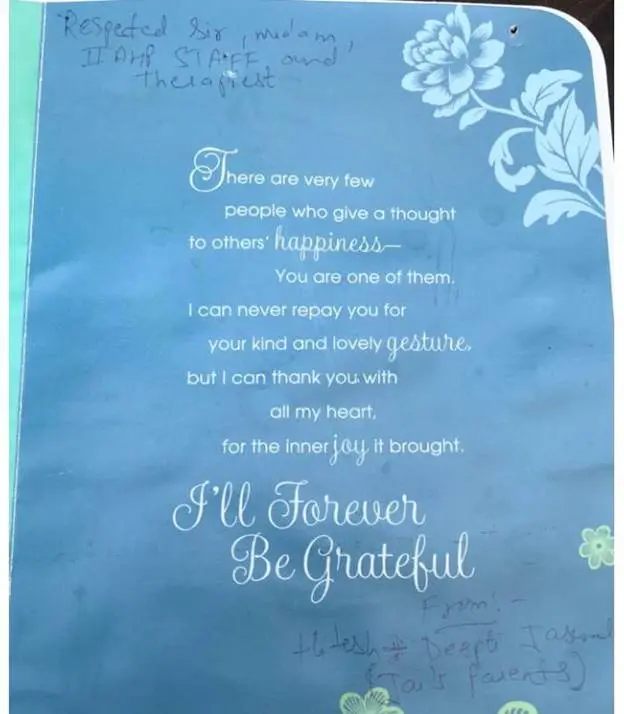 Respected Sir, madam,
IIAHP STAFF and
therapist
There are very few
people who give a thought
to others' happiness—
You are one of them.
I can never repay you for
your kind and lovely gesture,
but I can thank you with
all my heart,
for the inner joy it brought.
I'll Forever
Be Grateful
From:-
Hitesh & Deepti
(Jai's Parents)